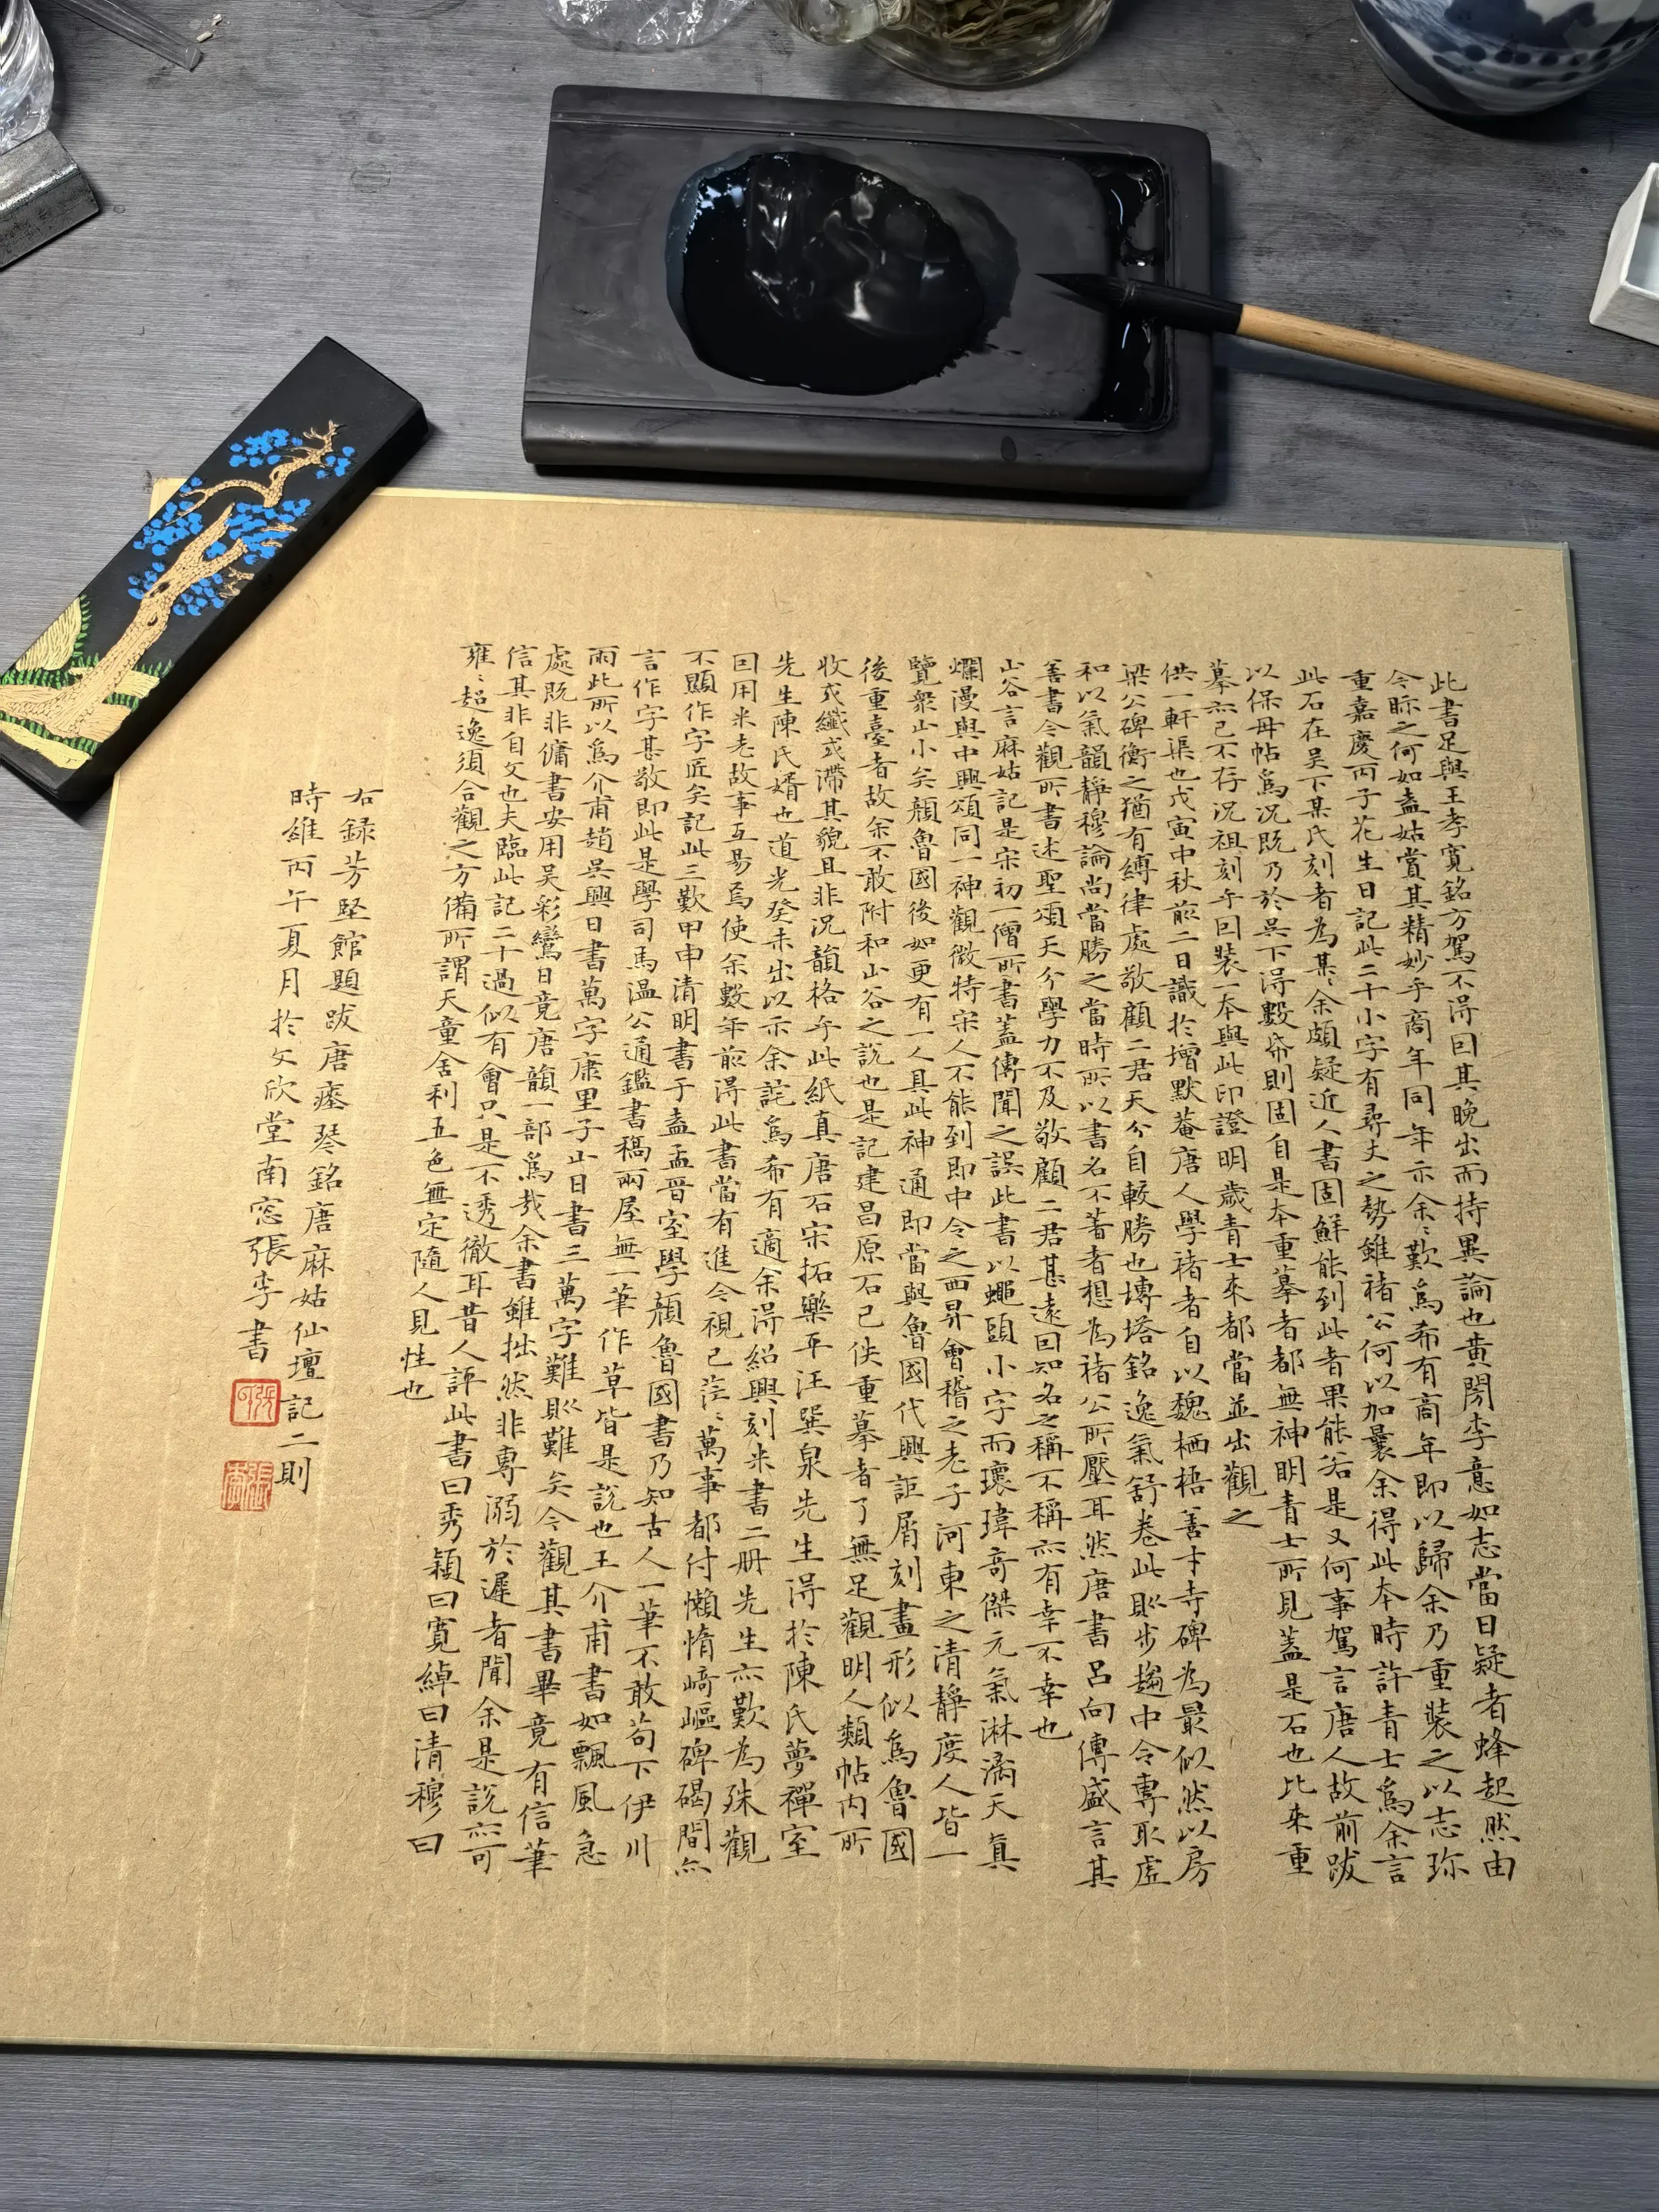 此書足與王孝寬銘方駕不得因其晚出而持異論也黃閣李意如志當日疑者蜂起然由
今眎之何如盍姑賞其精妙乎商年同年示余〻歎為希有商年即以歸余乃重裝之以志珎
重嘉慶丙子花生日記此二十小字有尋丈之勢雖褚公何以加曩余得此本時許青士為余言
此石在吳下某氏刻者為某〻余頗疑近人書固鮮能到此者果能若是又何事駕言唐人故前跋
以保母帖為況既乃於吳下得數帋則固自是本重摹者都無神明青士所見蓋是石也比來重
摹亦已不存況祖刻乎因裝一本與此印證明歲青士來都當並出觀之
供一軒渠也戊寅中秋前二日識於增默菴唐人學褚者自以魏栖梧善才寺碑為最似然以房
梁公碑衡之猶有縛律處敬顧二君天分自較勝也塼塔銘逸氣舒卷此則步趨中令專取虛
和以氣韻靜穆論尚當勝之當時所以書名不著者想為褚公所壓耳然唐書呂向傳盛言其
善書今觀所書述聖頌天分學力不及敬顧二君甚遠因知名之稱不稱亦有幸不幸也
山谷言麻姑記是宋初一僧所書蓋傳聞之誤此書以蠅頭小字而瓌瑋奇傑元氣淋漓天真
爛漫與中興頌同一神觀微特宋人不能到即中令之西昇會稽之老子河東之清靜度人皆一
覽衆山小矣顏魯國後如更有一人具此神通即當與魯國代興詎屑刻畫形似為魯國
後重臺者故余不敢附和山谷之說也是記建昌原石已佚重摹者了無足觀明人類帖内所
收或纖或滯其貌且非況韻格乎此紙真唐石宋拓樂平汪巽泉先生得於陳氏夢禪室
先生陳氏婿也道光癸未出以示余詫為希有適余得紹興刻米書二册先生亦歎為殊觀
因用米老故事互易焉使余數年前得此書當有進今視已茫〻萬事都付懶惰崎嶇碑碣間亦
不顯作字匠矣記此三歎甲申清明書于盍孟晉室學顏魯國書乃知古人一筆不敢苟下伊川
言作字甚敬即此是學司馬温公通鑑書稿兩屋無一筆作草皆是說也王介甫書如飄風急
雨此所以為介甫趙吳興日書萬字康里子山日書三萬字難則難矣今觀其書畢竟有信筆
處既非傭書安用吳彩鸞日竟唐韻一部為哉余書雖拙然非專溺於遲者聞余是說亦可
信其非自文也夫臨此記二十過似有會只是不透徹耳昔人評此書曰秀穎曰寬綽曰清穆曰
雍〻超逸須合觀之方備所謂天童舍利五色無定隨人見性也
右録芳堅館題跋唐瘞琴銘唐麻姑仙壇記二則
時維丙午夏月於文欣堂南窓張李書